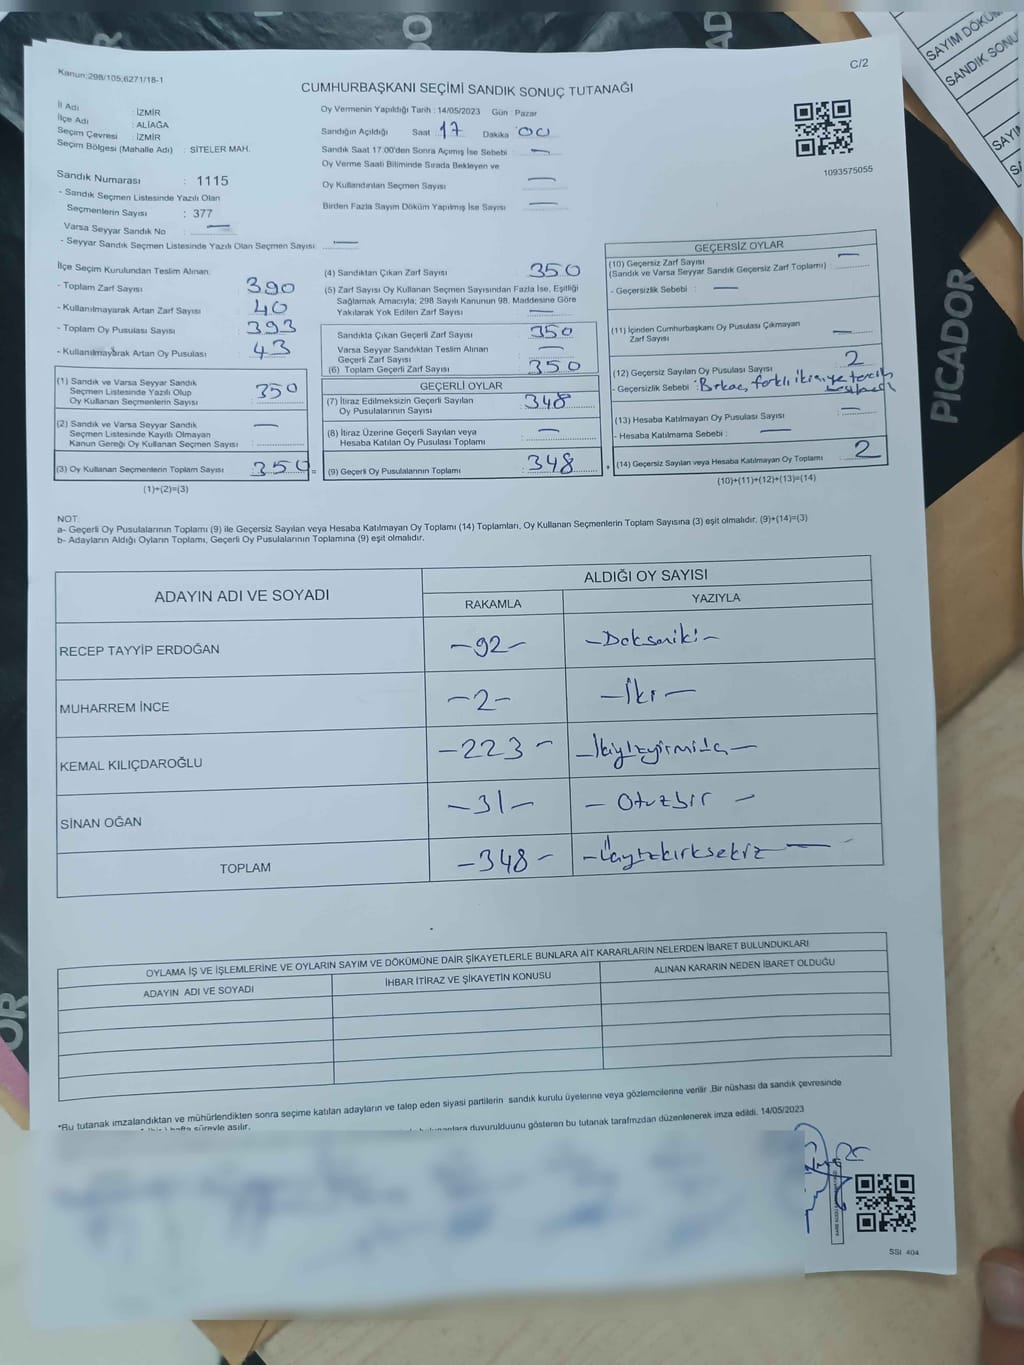 C/2
Kanun:298/105;6271/18-1
CUMHURBAŞKANI SEÇİMİ SANDIK SONUÇ TUTANAĞI
İl Adı : İZMİR
İlçe Adı : ALİAĞA
Seçim Çevresi : İZMİR
Seçim Bölgesi (Mahalle Adı) : SİTELER MAH.
Sandık Numarası : 1115
- Sandık Seçmen Listesinde Yazılı Olan
Seçmenlerin Sayısı : 377
Varsa Seyyar Sandık No —
- Seyyar Sandık Seçmen Listesinde Yazılı Olan Seçmen Sayısı: —
Oy Vermenin Yapıldığı Tarih : 14/05/2023 Gün : Pazar
Sandığın Açıldığı Saat 17 Dakika 00
Sandık Saat 17.00'den Sonra Açımış İse Sebebi : —
Oy Verme Saati Bitiminde Sırada Bekleyen ve
Oy Kullandırılan Seçmen Sayısı : —
Birden Fazla Sayım Döküm Yapılmış İse Sayısı : —
1093575055
İlçe Seçim Kurulundan Teslim Alınan:
- Toplam Zarf Sayısı : 390
- Kullanılmayarak Artan Zarf Sayısı : 40
- Toplam Oy Pusulası Sayısı : 393
- Kullanılmayarak Artan Oy Pusulası : 43
(1) Sandık ve Varsa Seyyar Sandık
Seçmen Listesinde Yazılı Olup
Oy Kullanan Seçmenlerin Sayısı : 350
(2) Sandık ve Varsa Seyyar Sandık
Seçmen Listesinde Kayıtlı Olmayan
Kanun Gereği Oy Kullanan Seçmen Sayısı : —
(3) Oy Kullanan Seçmenlerin Toplam Sayısı : 350 =
(1)+(2)=(3)
(4) Sandıktan Çıkan Zarf Sayısı : 350
(5) Zarf Sayısı Oy Kullanan Seçmen Sayısından Fazla İse, Eşitliği
Sağlamak Amacıyla; 298 Sayılı Kanunun 98. Maddesine Göre
Yakılarak Yok Edilen Zarf Sayısı : —
Sandıkta Çıkan Geçerli Zarf Sayısı : 350
Varsa Seyyar Sandıktan Teslim Alınan
Geçerli Zarf Sayısı : —
(6) Toplam Geçerli Zarf Sayısı : 350
GEÇERLİ OYLAR
(7) İtiraz Edilmeksizin Geçerli Sayılan
Oy Pusulalarının Sayısı : 348
(8) İtiraz Üzerine Geçerli Sayılan veya
Hesaba Katılan Oy Pusulası Toplamı : —
(9) Geçerli Oy Pusulalarının Toplamı : 348 +
GEÇERSİZ OYLAR
(10) Geçersiz Zarf Sayısı : —
(Sandık ve Varsa Seyyar Sandık Geçersiz Zarf Toplamı)
- Geçersizlik Sebebi : —
(11) İçinden Cumhurbaşkanı Oy Pusulası Çıkmayan
Zarf Sayısı : —
(12) Geçersiz Sayılan Oy Pusulası Sayısı : 2
- Geçersizlik Sebebi : farklı tercih
(13) Hesaba Katılmayan Oy Pusulası Sayısı : —
- Hesaba Katılmama Sebebi : —
(14) Geçersiz Sayılan veya Hesaba Katılmayan Oy Toplamı : 2
(10)+(11)+(12)+(13)=(14)
NOT:
a- Geçerli Oy Pusulalarının Toplamı (9) ile Geçersiz Sayılan veya Hesaba Katılmayan Oy Toplamı (14) Toplamları, Oy Kullanan Seçmenlerin Toplam Sayısına (3) eşit olmalıdır. (9)+(14)=(3)
b- Adayların Aldığı Oyların Toplamı, Geçerli Oy Pusulalarının Toplamına (9) eşit olmalıdır.
ADAYIN ADI VE SOYADI ALDIĞI OY SAYISI
RAKAMLA YAZIYLA
RECEP TAYYİP ERDOĞAN -92- -Doksaniki-
MUHARREM İNCE -2- -İki-
KEMAL KILIÇDAROĞLU -223- -İkiyüzyirmiüç-
SİNAN OĞAN -31- -Otuzbir-
TOPLAM -348- -Üçyüzkırksekiz-
OYLAMA İŞ VE İŞLEMLERİNE VE OYLARIN SAYIM VE DÖKÜMÜNE DAİR ŞİKAYETLERLE BUNLARA AİT KARARLARIN NELERDEN İBARET BULUNDUKLARI
ADAYIN ADI VE SOYADI İHBAR İTİRAZ VE ŞİKAYETİN KONUSU ALINAN KARARIN NEDEN İBARET OLDUĞU
*Bu tutanak imzalandıktan ve mühürlendikten sonra seçime katılan adayların ve talep eden siyasi partilerin sandık kurulu üyelerine veya gözlemcilerine verilir .Bir nüshası da sandık çevresinde
hafta süreyle asılır.
duyurulduunu gösteren bu tutanak tarafımzdan düzenlenerek imza edildi. 14/05/2023
SSI 404
PICADOR
SAYIM DÖKÜM
SANDIK SONU